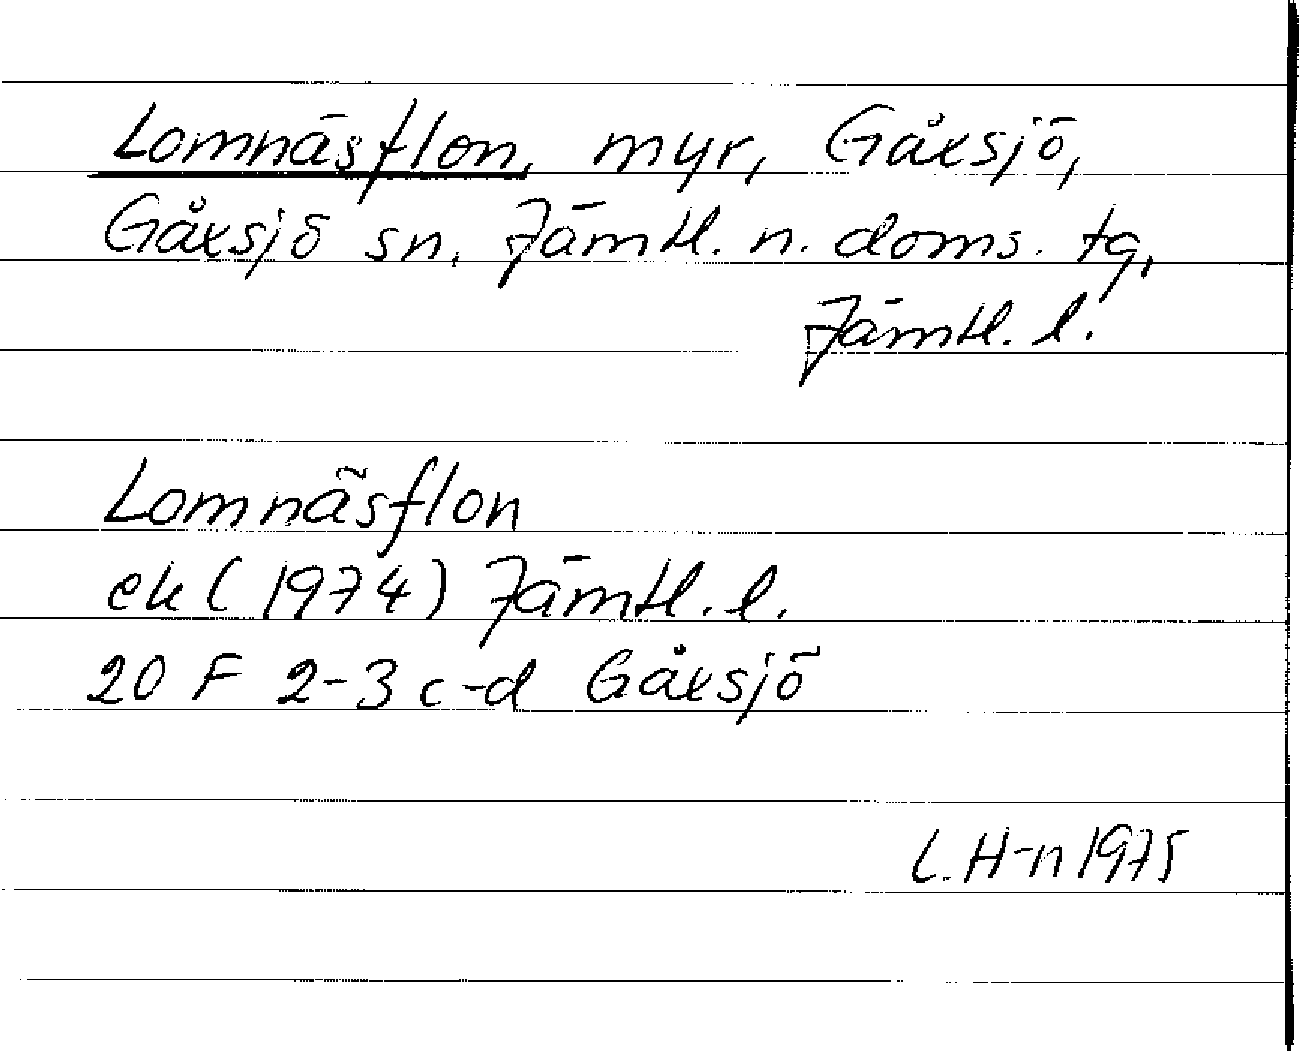 Lomnäsflon, myr, Gåxsjö,
Gåxsjö sn, Jämtl. n. doms. tg,
Jämtl. l.
Lomnäsflon
ek (1974) Jämtl. l.
20 F 2-3 c-d Gåxsjö
L. H-n 1975